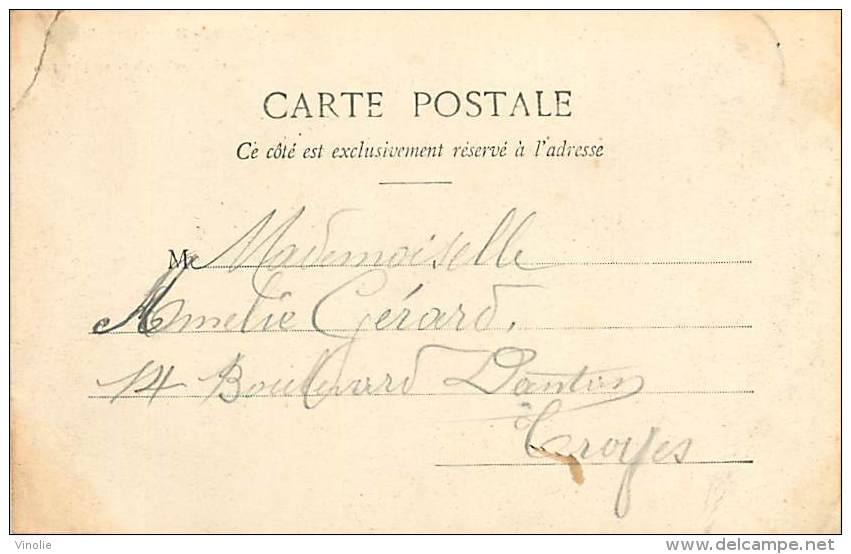 CARTE POSTALE
Ce côté est exclusivement réservé à l'adresse
M Mademoiselle
Amelie Gérard.
14 Boulevard Danton
à Troyes
Vinolie
delcampe.net